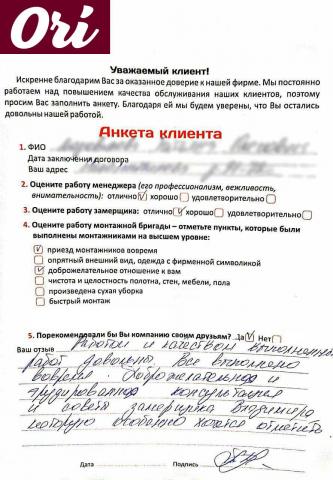 Ori
Уважаемый клиент!
Искренне благодарим Вас за оказанное доверие к нашей фирме. Мы постоянно
работаем над повышением качества обслуживания наших клиентов, поэтому
просим Вас заполнить анкету. Благодаря ей мы будем уверены, что Вы остались
довольны нашей работой.
Анкета клиента
1. ФИО
Дата заключения договора
Ваш адрес
2. Оцените работу менеджера (его профессионализм, вежливость,
внимательность): отлично хорошо удовлетворительно
3. Оцените работу замерщика: отлично хорошо удовлетворительно
4. Оцените работу монтажной бригады – отметьте пункты, которые были
выполнены монтажниками на высшем уровне:
приезд монтажников вовремя
опрятный внешний вид, одежда с фирменной символикой
доброжелательное отношение к вам
чистота и целостность полотна, стен, мебели, пола
произведена сухая уборка
быстрый монтаж
5. Порекомендовали бы Вы компанию своим друзьям? Да Нет
Ваш отзыв Работой и качеством выполненных
работ довольны. Все выполнено
вовремя. Доброжелательная и
эрудированная консультация
и советы замерщика Владимира
которую особенно хочется отметить
Дата Подпись